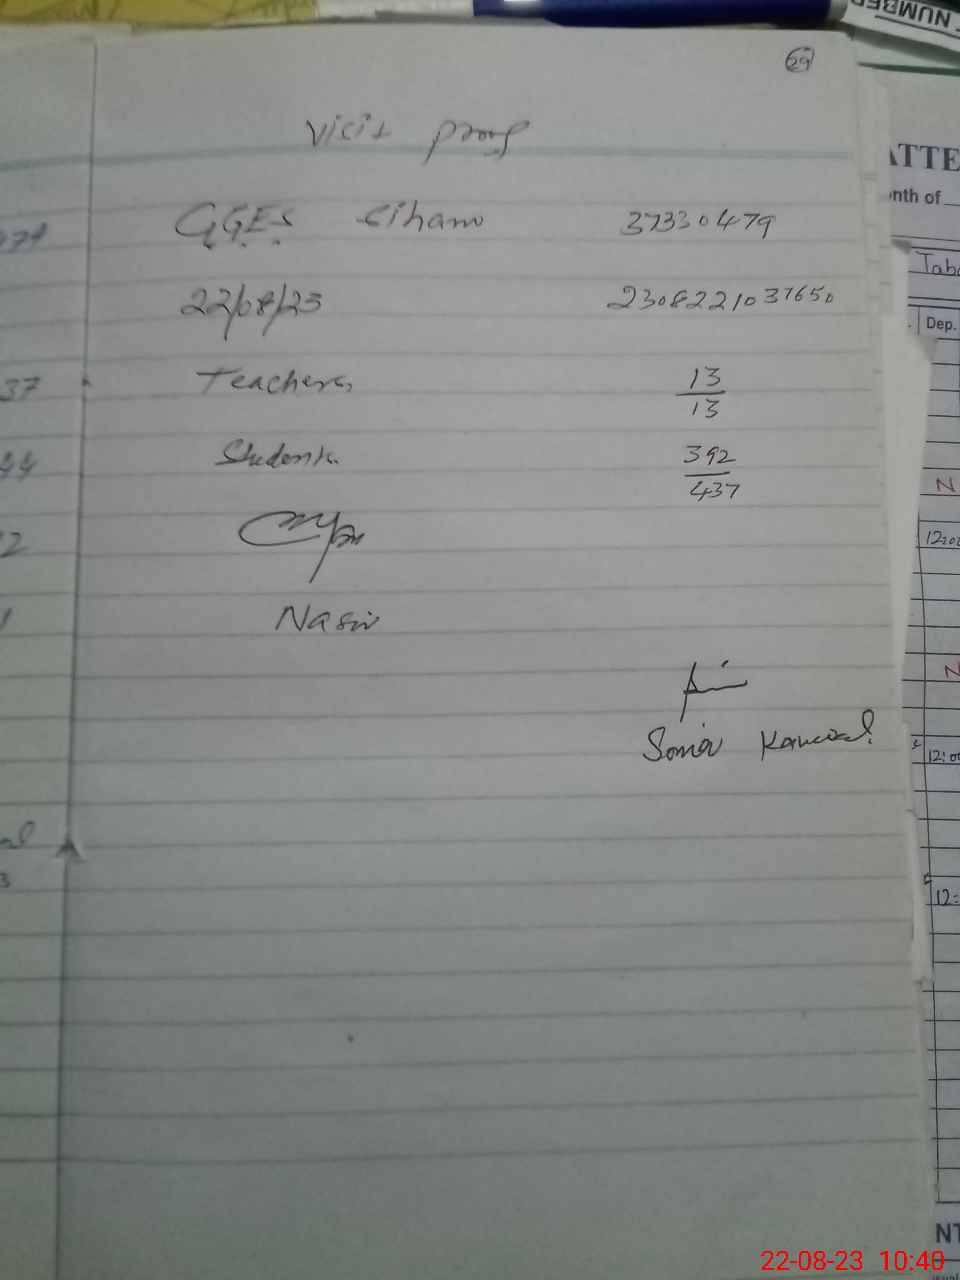 NUMBER
29
Visit proof
G.G.E.S Siham 37330479
22/08/23 2308221037650
Teachers 13/13
Students 392/437
Nasir
Sonia Kanwal
479
37
44
2
1
3
ATTE
nth of
Tab
Dep.
N
12:00
N
12:00
12:
NT
22-08-23 10:40